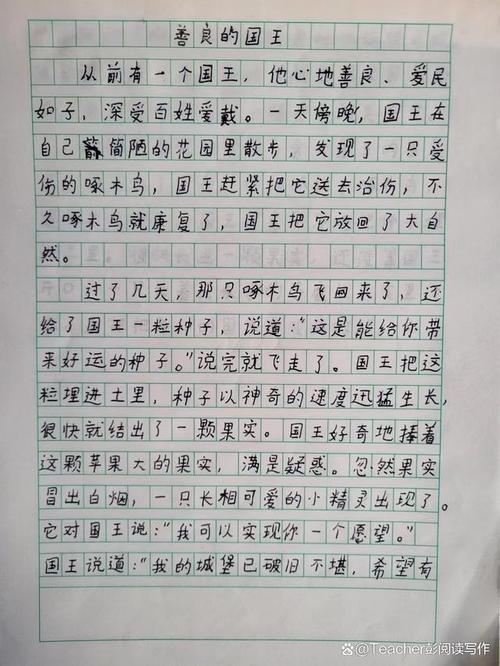 善良的国王
从前有一个国王，他心地善良、爱民
如子，深受百姓爱戴。一天傍晚，国王在
自己简陋的花园里散步，发现了一只受
伤的啄木鸟，国王赶紧把它送去治伤，不
久啄木鸟就康复了，国王把它放回了大自
然。
过了几天，那只啄木鸟飞回来了，还
给了国王一粒种子，说道：“这是能给你带
来好运的种子。”说完就飞走了。国王把这
粒埋进土里，种子以神奇的速度迅猛生长，
很快就结出了一颗果实。国王好奇地捧着
这颗苹果大的果实，满是疑惑。忽然果实
冒出白烟，一只长相可爱的小精灵出现了。
它对国王说：“我可以实现你一个愿望。”
国王说道：“我的城堡已破旧不堪，希望有
@Teacher彭阅读写作